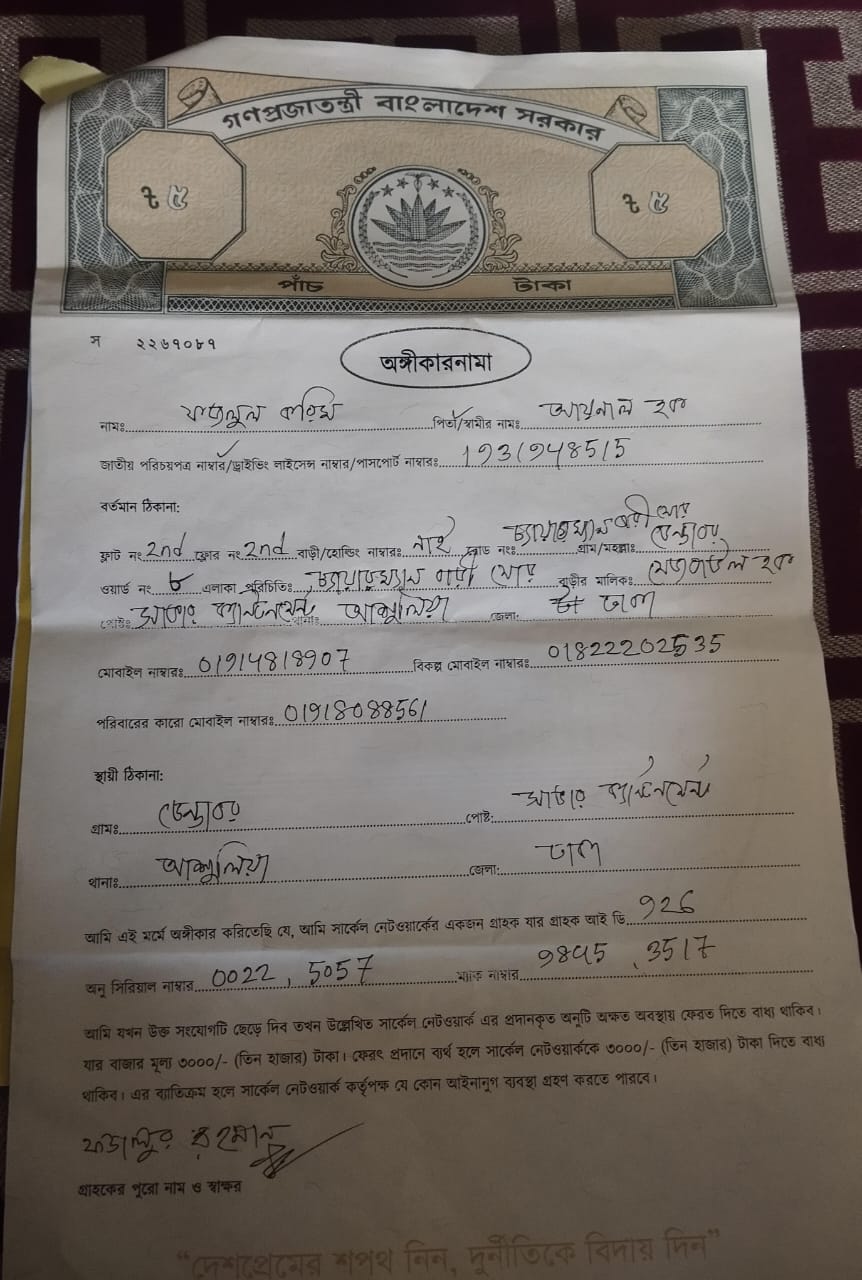 গণপ্রজাতন্ত্রী বাংলাদেশ সরকার
৳ ৫ ৳ ৫
পাঁচ টাকা
স ২২৬৭০৮৭
অঙ্গীকারনামা
নামঃ ফজলুল করিম পিতা/স্বামীর নামঃ আয়নাল হক
জাতীয় পরিচয়পত্র নাম্বার/ড্রাইভিং লাইসেন্স নাম্বার/পাসপোর্ট নাম্বারঃ 1931948515
বর্তমান ঠিকানা:
ফ্লাট নং 2nd ফ্লোর নং 2nd বাড়ী/হোল্ডিং নাম্বারঃ নাই রোড নংঃ চেয়ারম্যান বাড়ী রোড গ্রাম/মহল্লাঃ ডেন্ডাবর
ওয়ার্ড নং ৮ এলাকা পরিচিতিঃ চেয়ারম্যান বাড়ী রোড বাড়ীর মালিকঃ হক
পোষ্টঃ সাভার ক্যান্টনমেন্ট থানাঃ আশুলিয়া জেলা: ঢাকা
মোবাইল নাম্বারঃ 01914818907 বিকল্প মোবাইল নাম্বারঃ 01822202535
পরিবারের কারো মোবাইল নাম্বারঃ 01918088561
স্থায়ী ঠিকানা:
গ্রামঃ ডেন্ডাবর পোষ্ট: সাভার ক্যান্টনমেন্ট
থানাঃ আশুলিয়া জেলা: ঢাকা
আমি এই মর্মে অঙ্গীকার করিতেছি যে, আমি সার্কেল নেটওয়ার্কের একজন গ্রাহক যার গ্রাহক আই ডি 926
অনু সিরিয়াল নাম্বার 0022, 5057 ম্যাক নাম্বার 9845, 3517
আমি যখন উক্ত সংযোগটি ছেড়ে দিব তখন উল্লেখিত সার্কেল নেটওয়ার্ক এর প্রদানকৃত অনুটি অক্ষত অবস্থায় ফেরত দিতে বাধ্য থাকিব।
যার বাজার মূল্য ৩০০০/- (তিন হাজার) টাকা। ফেরৎ প্রদানে ব্যর্থ হলে সার্কেল নেটওয়ার্ককে ৩০০০/- (তিন হাজার) টাকা দিতে বাধ্য
থাকিব। এর ব্যতিক্রম হলে সার্কেল নেটওয়ার্ক কর্তৃপক্ষ যে কোন আইনানুগ ব্যবস্থা গ্রহণ করতে পারবে।
ফজলুর রহমান
গ্রাহকের পুরো নাম ও স্বাক্ষর
“দেশপ্রেমের শপথ নিন, দুর্নীতিকে বিদায় দিন”